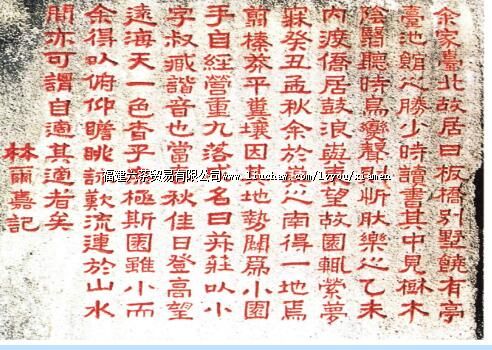 余家臺北故居曰板橋別墅饒有亭
臺池館之勝少時讀書其中見樹木
陰翳聽時鳥變聲則忻然樂之乙未
內渡僑居鼓浪嶼東望故園輒縈夢
寐癸丑孟秋余於島之南得一地焉
翦榛莽平糞壤因其地勢闢為小園
手自經營重九落成名曰菽莊以小
字叔臧諧音也當春秋佳日登高望
遠海天一色杳乎無極斯園雖小而
余得以俯仰瞻眺詠歎流連於山水
間亦可謂自適其適者矣
林爾嘉記
福建六茶贸易有限公司 www.liuchaw.com/lvyou/xiamen